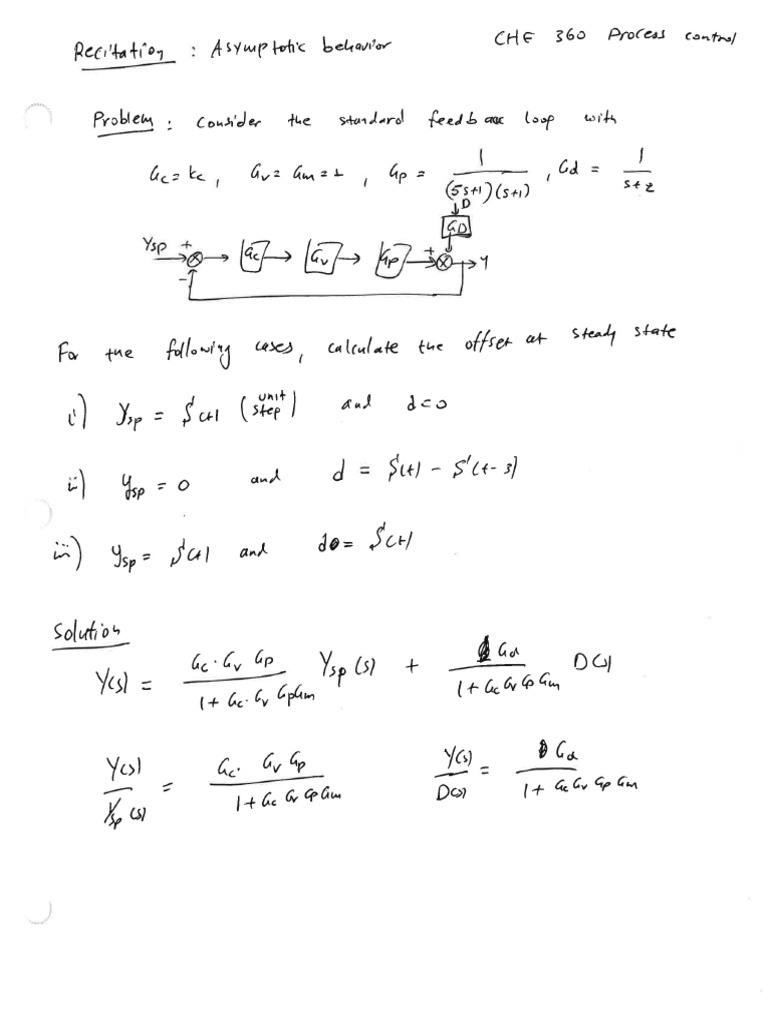 Recitation : Asymptotic behavior
CHE 360 Process control
Problem : Consider the standard feedback loop with
Gc = kc , Gv = Gm = 1 , Gp = 1 / (5s+1)(s+1) , Gd = 1 / s+2
D
GD
Ysp + Gc Gv Gp + Y
-
For the following cases, calculate the offset at steady state
i) Ysp = S(t) (unit step) and d=0
ii) Ysp = 0 and d = S(t) - S(t-3)
iii) Ysp = S(t) and d = S(t)
Solution
Y(s) = Gc·Gv Gp / 1 + Gc·Gv GpGm Ysp(s) + Gd / 1 + Gc Gv Gp Gm D(s)
Y(s) / Ysp(s) = Gc· Gv Gp / 1 + Gc Gv Gp Gm Y(s) / D(s) = Gd / 1 + Gc Gv Gp Gm